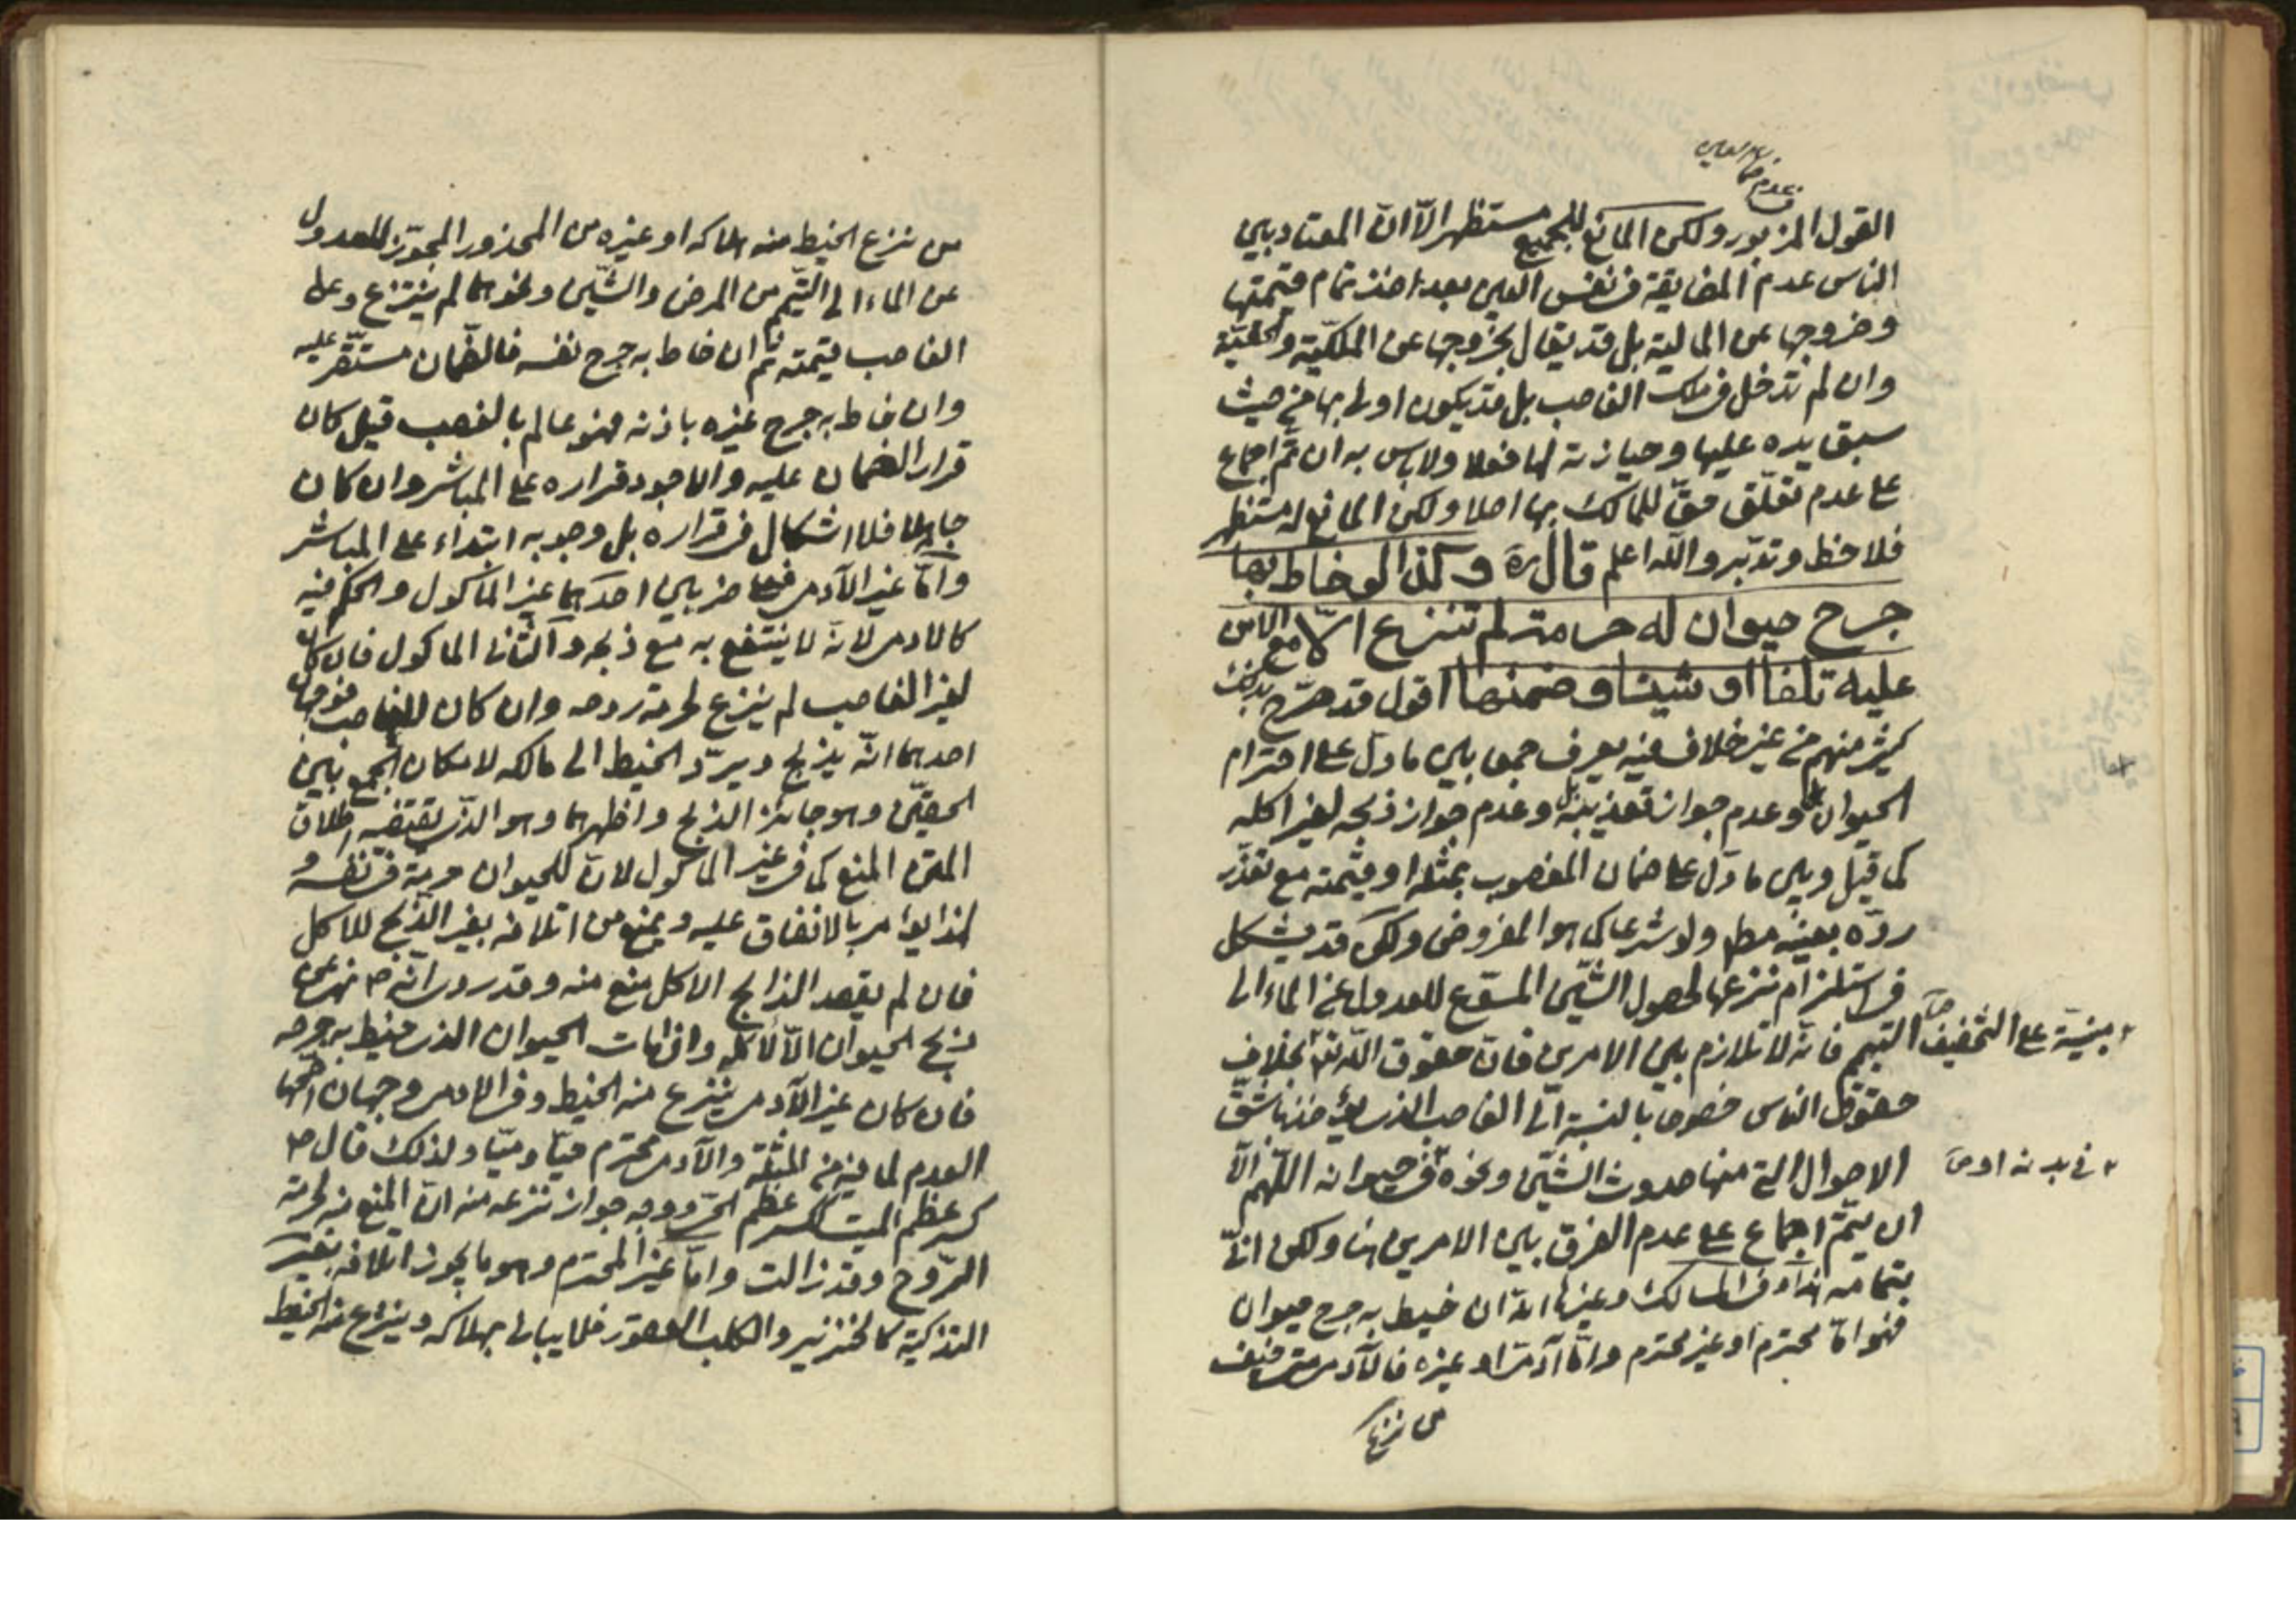 عدم ضمان العين
القول المزبور ولكن المانع للجميع مستظهر الا ان المعتاد بين
الناس عدم المضايقة في نفس العين بعد اخذ تمام قيمتها
وخروجها عن المالية بل قد يقال بخروجها عن الملكيّة والحقيّة
وان لم تدخل في ملك الغاصب بل قد يكون اولى بها من حيث
سبق يده عليها وحيازته لها فعلا ولا باس به ان تم اجماع
على عدم تعلّق حقّ للمالك بها اصلا ولكن المانع له مستظهر
فلاحظ وتدبر والله اعلم قال ره وكذا لو خاط بها
جرح حيوان له حرمة لم تنتزع الّا مع الامن
عليه تلفا او شينا وضمنها اقول قد صرّح بذلك
كثير منهم من غير خلاف فيه يعرف جمعا بين ما دل على احترام
الحيوان وعدم جواز تعذيبه بل وعدم جواز ذبحه لغير اكله
كما قيل وبين ما دل على ضمان المغصوب بمثله او قيمته مع تعذّر
ردّه بعينه مطلقا ولو شرعا كما هو المفروض ولكن قد يشكل
في استلزام نزعها لحصول الشّين المسوّغ للعدول عن الماء الى
التيمم فانه لا تلازم بين الامرين فان حقوق الله تعالى بخلاف
مبنيّة على التخفيف صح
حقوق الناس خصوصا بالنسبة الى الغاصب الذي يؤخذ باشقّ
الاحوال التي منها حدوث الشّين ونحوه في حيوانه اللّهم الّا
في بدنه او صح
ان يتمّ اجماع على عدم الفرق بين الامرين هنا ولكن انّى
بتمامه هذا وفي المسالك وغيرها انه ان خيط به جرح حيوان
فهو امّا محترم او غير محترم وامّا آدمي او غيره فالآدمي متى خيف
من نزعها
من نزع الخيط منه هلاكه او غيره من المحذور المجوّز للعدول
عن الماء الى التيّمم من المرض والشّين ونحوهما لم ينتزع وعلى
الغاصب قيمته ثم ان خاط به جرح نفسه فالضّمان مستقّر عليه
وان خاط به جرح غيره باذنه فهو عالم بالغصب قيل كان
قرار الضمان عليه والاجود قراره على المباشر وان كان
جاهلا فلا اشكال في قراره بل وجوبه ابتداء على المباشر
وامّا غير الآدمي فعلى ضربين احدهما غير الماكول والحكم فيه
كالادمي لانه لا ينتفع به مع ذبحه والثاني الماكول فان كان
لغير الغاصب لم ينزع لحرمة روحه وان كان للغاصب فوجهان
احدهما انّه يذبح ويردّ الخيط الى مالكه لامكان الجمع بين
الحقيّن وهو جائز الذبح واظهرهما وهو الذي يقتضيه اطلاق
المتن المنع كما في غير الماكول لانّ للحيوان حرمة في نفسه و
لهذا يؤمر بالانفاق عليه ويمنع من اتلافه بغير الذّبح للاكل
فان لم يقصد الذابح الاكل منع منه وقد روي انّه ص نهى عن
ذبح الحيوان الّا لاكله واذا مات الحيوان الذي خيط به جرحه
فان كان غير الآدمي ينتزع منه الخيط وفي الادمي وجهان اصحّهما
العدم لما فيه من المثلة والآدمي محترم حيّا وميّتا ولذلك قال ص
كسر عظم الميت ككسر عظم الحيّ ووجه جواز نزعه منه انّ المنع منه لحرمة
الرّوح وقد زالت وامّا غير المحترم وهو ما يجوز اتلافه بغير
التذكية كالخنزير والكلب العقور فلا يبالى بهلاكه وينزع منه الخيط